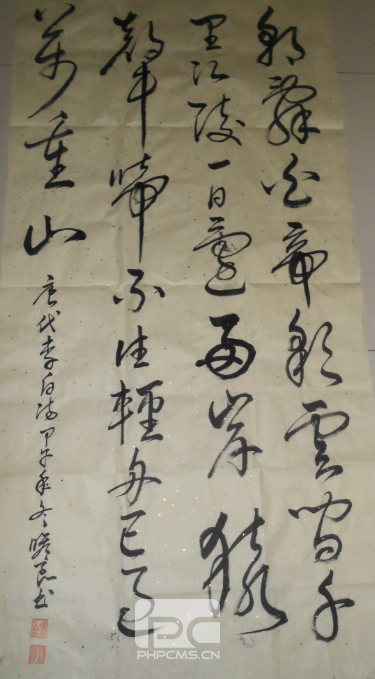 朝辭白帝彩雲間千
里江陵一日還兩岸猿
聲啼不住輕舟已過
萬重山
唐代李白詩甲午年冬書
PHPCMS.CN